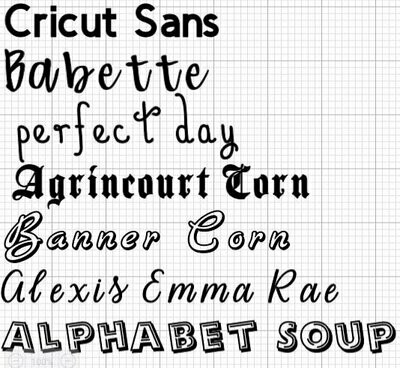 Cricut Sans
Babette
perfect day
Agrincourt Torn
Banner Corn
Alexis Emma Rae
ALPHABET SOUP